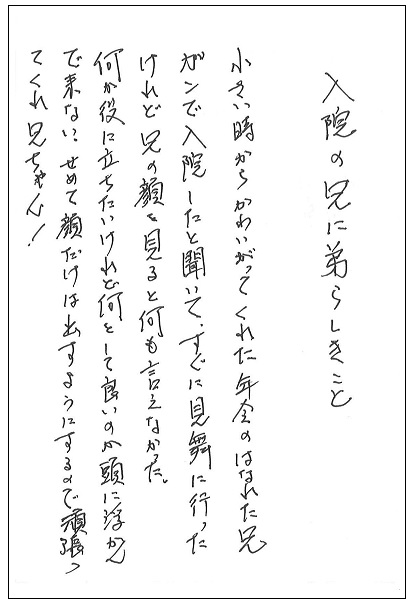 入院の兄に弟らしきこと
小さい時からかわいがってくれた年令のはなれた兄
ガンで入院したと聞いて、すぐに見舞に行った
けれど兄の顔を見ると何も言えなかった。
何か役に立ちたいけれど何をして良いのか頭に浮かん
で来ない。せめて顔だけは出すようにするので頑張っ
てくれ兄ちゃん！